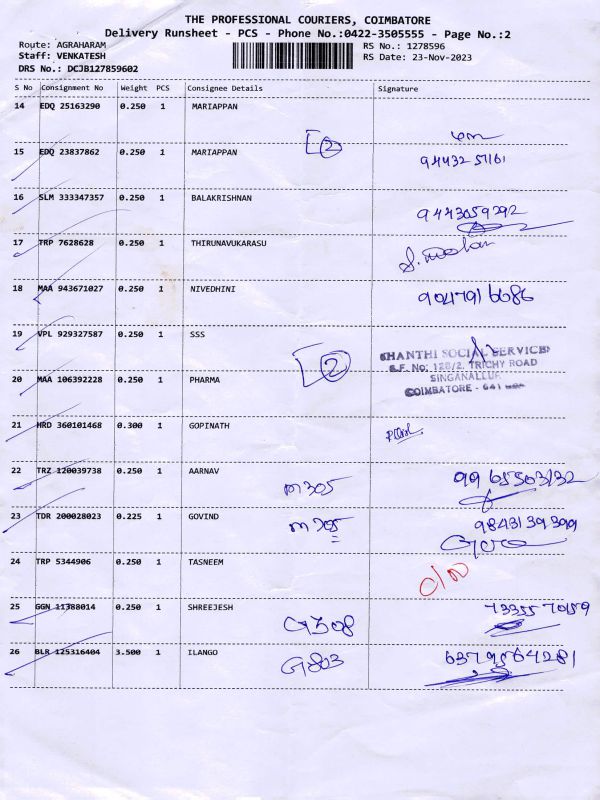 THE PROFESSIONAL COURIERS, COIMBATORE
Delivery Runsheet - PCS - Phone No.:0422-3505555 - Page No.:2
Route: AGRAHARAM
RS No.: 1278596
Staff: VENKATESH
RS Date: 23-Nov-2023
DRS No.: DCJB127859602
S No Consignment No Weight PCS Consignee Details Signature
14 EDQ 25163290 0.250 1 MARIAPPAN
15 EDQ 23837862 0.250 1 MARIAPPAN
2
16 SLM 333347357 0.250 1 BALAKRISHNAN
9443059292
17 TRP 7628628 0.250 1 THIRUNAVUKARASU
18 MAA 943671027 0.250 1 NIVEDHINI
9047916686
19 VPL 929327587 0.250 1 SSS
2
SHANTHI SOCIAL SERVICE
S.F. No: 128/2, TRICHY ROAD
20 MAA 106392228 0.250 1 PHARMA
SINGANALLUR
COIMBATORE - 641
21 HRD 360101468 0.300 1 GOPINATH
22 TRZ 120039738 0.250 1 AARNAV
M305
9965503132
23 TDR 200028023 0.225 1 GOVIND
M305
9843139399
24 TRP 5344906 0.250 1 TASNEEM
25 GGN 11388014 0.250 1 SHREEJESH
G308
7335570159
26 BLR 125316404 3.500 1 ILANGO
G803
6379564281